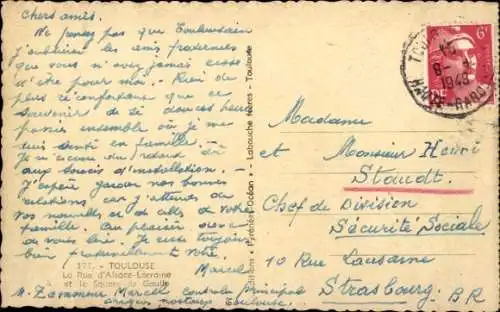 Chers amis.
Ne pensez pas que Toulousain
j'oublierai les amis fraternels
que vous n'avez jamais cessé
d'être pour moi. - Rien de
plus réconfortant que ce
souvenir de ces douces heures
passées ensemble où je me
suis senti en famille.
Je m'excuse du retard dû
aux soucis d'installation. -
J'espère garder nos bonnes
relations car j'attends de
vos nouvelles et de celles de votre
famille. Au plaisir donc
de vous lire. Je suis toujours
bien fraternellement votre.
Marcel
177. - TOULOUSE
La Rue d'Alsace-Lorraine
et le Square de Gaulle
M. Marcel Contrôleur Principal
Toulouse.
Editions "Pyrénées-Océan" - Labouche frères - Toulouse
6F
1948
RF
Madame
et Monsieur Henri
Staudt.
Chef de Division
Sécurité Sociale
10 Rue Lausanne
Strasbourg. B.R